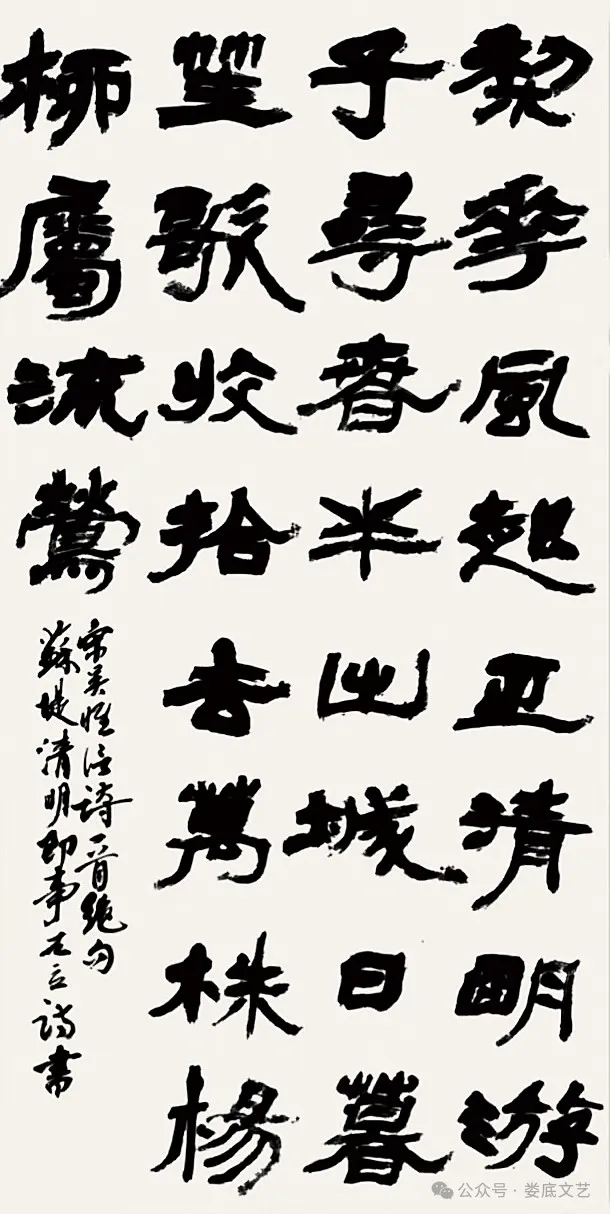 梨花風起正清明游
子尋春半出城日暮
笙歌收拾去萬株楊
柳屬流鶯
宋吳惟信詩一首絕句
蘇堤清明即事 書
公众号·娄底文艺